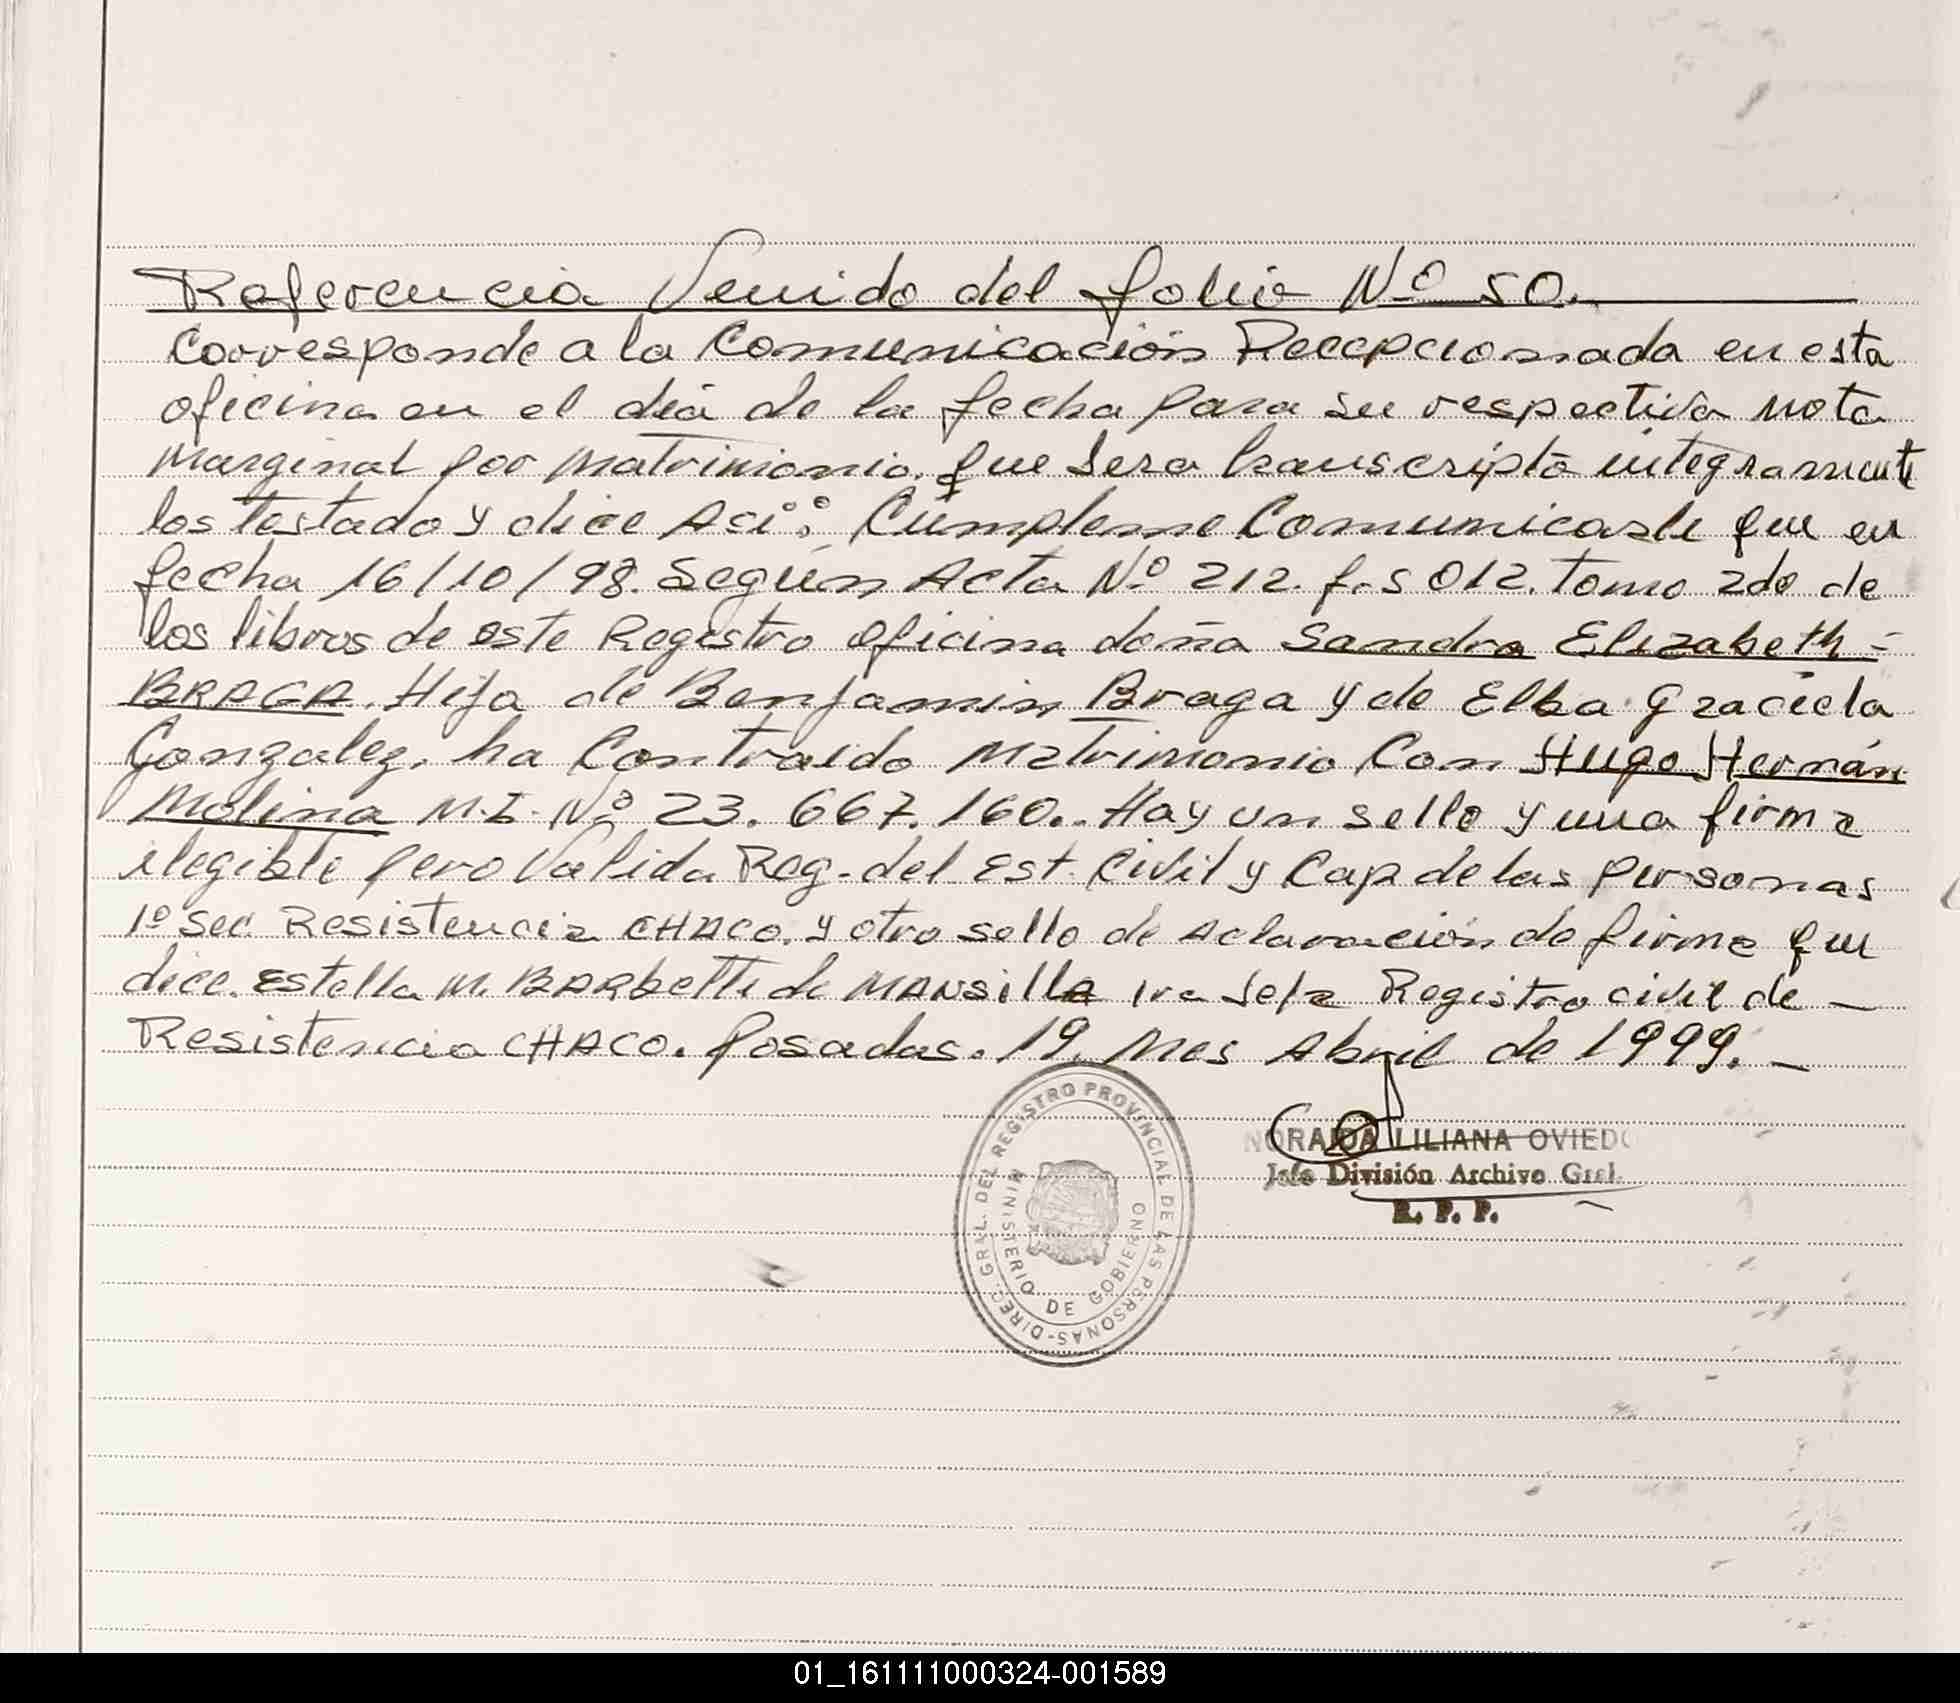 Referencia Venido del folio Nº 50.
Corresponde a la Comunicación Recepcionada en esta
oficina en el día de la fecha para su respectiva nota
Marginal por Matrimonio. que sera transcripto integramente
los testado y dice Aci: Cúmpleme Comunicarle que en
fecha 16/10/98. Según Acta Nº 212. f.s 012. tomo 2do de
los libros de este Registro oficina doña Sandra Elizabeth -
BRAGA. Hija de Benjamin Braga y de Elba Graciela
Gonzalez, ha Contraido Matrimonio Con Hugo Hernán
Molina M.I. Nº 23.667.160.. Hay un sello y una firma
ilegible pero Valida Reg. del Est. Civil y Cap de las Personas
1º Sec. Resistencia CHACO. y otro sello de Aclaración de firma que
dice. Estella M. BARbetti de MANSillA 1ra Jefa Registro civil de -
Resistencia CHACO. Posadas. 19. Mes Abril de 1999. -
NORAIDA LILIANA OVIEDO
Jefe División Archivo Gral.
R. P. P.
DIREC. GRAL. DEL REGISTRO PROVINCIAL DE LAS PERSONAS-
MINISTERIO DE GOBIERNO
01_161111000324-001589